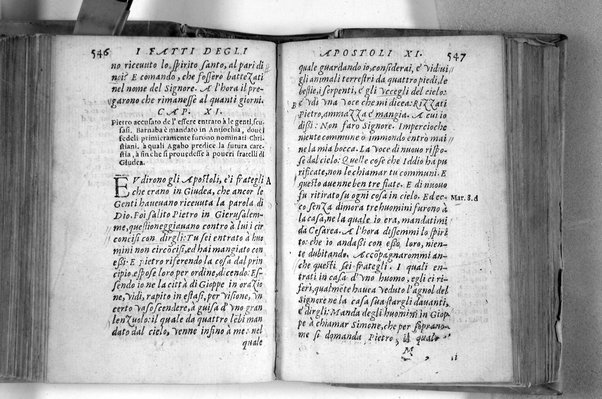 546 I FATTI DEGLI
no riceuuto lo spirito santo, al pari di
noi? E comando, che fossero battezati
nel nome del Signore. A l'hora il pre-
garono che rimanesse al quanti giorni.
CAP. XI.
Pietro accusato de l'essere entrato a le genti, scu-
sasi. Barnaba è mandato in Antiochia, doue i
fedeli primieramente furono nominati Chri-
stiani, a quali Agabo predice la futura care-
stia, à fin che si prouedesse à poueri fratelli di
Giudea.
EVdirono gli Apostoli, e i frategli A
che erano in Giudea, che ancor le
Genti haueuano riceuuta la parola di
Dio. Poi salito Pietro in Gierusalem-
me, questioneggiauano contro à lui i cir
concisi con dirgli: Tu sei entrato à huo
mini non circōcisi, ed hai mangiato con
essi. E pietro riferendo la cosa dal prin
cipio, espose loro per ordine, dicendo: Es-
sendo io ne la città di Gioppe in oratio
ne, vidi, rapito in estasi, per visione, vn
certo vaso scendere, à guisa d'vno gran
lenzuolo: il quale da quattro lebi man
dato dal cielo, venne insino à me: nel
quale
APOSTOLI XI. 547
quale guardando io, considerai, è vidi ui
gli animali terrestri da quattro piedi, le
bestie, i serpenti, e gli vccegli del cielo:
B e vdi vna voce che mi dicea: Rizzati
pietro, ammazza e mangia. A cui io
dissi: Non faro Signore. Impercioche
niente commune ò immondo entrò mai
ne la mia bocca. La voce di nuouo rispo-
se dal cielo: Quelle cose che Iddio ha pu
rificate, non le chiamar tu communi. E
questo auenne ben tre fiate. E di nuouo
fu ritirato su ogni cosa in cielo. Ed ec- Mar. 8. d
co senza dimora tre huomini furono à
la casa, ne la quale io era, mandatimi
da Cesarea. A l'hora dissemmi lo spiri-
to: che io andassi con esso loro, niente
dubitando. Accōpagnaronmi an-
che questi sei frategli. I quali ent
rati in casa d'vno huomo, egli ci ri-
ferì, qualmēte hauea veduto l'agnol del
Signore ne la casa sua stargli dauanti,
e dirgli: Manda degli huomini in Giop
pe à chiamar Simone, che per soprano-
me si domanda Pietro, il quale
M ii